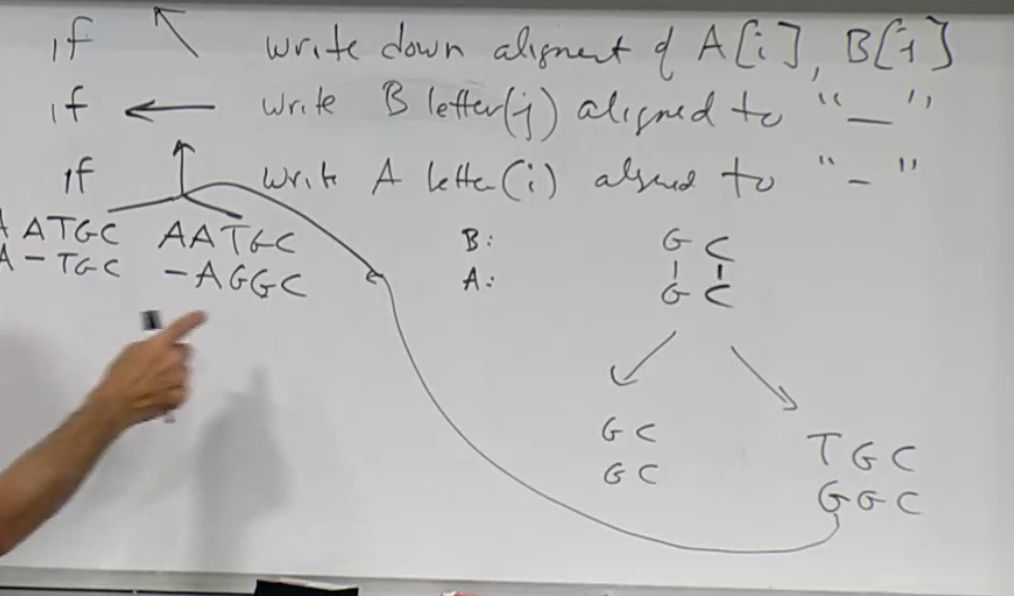 if ↖ write down alignment of A[i], B[j]
if ← write B letter(j) aligned to "—"
if ↑ write A letter(i) alsned to "-"
A ATGC AATGC
A-TGC -AGGC
B: G C
A: G C
G C
G C
T G C
G G C